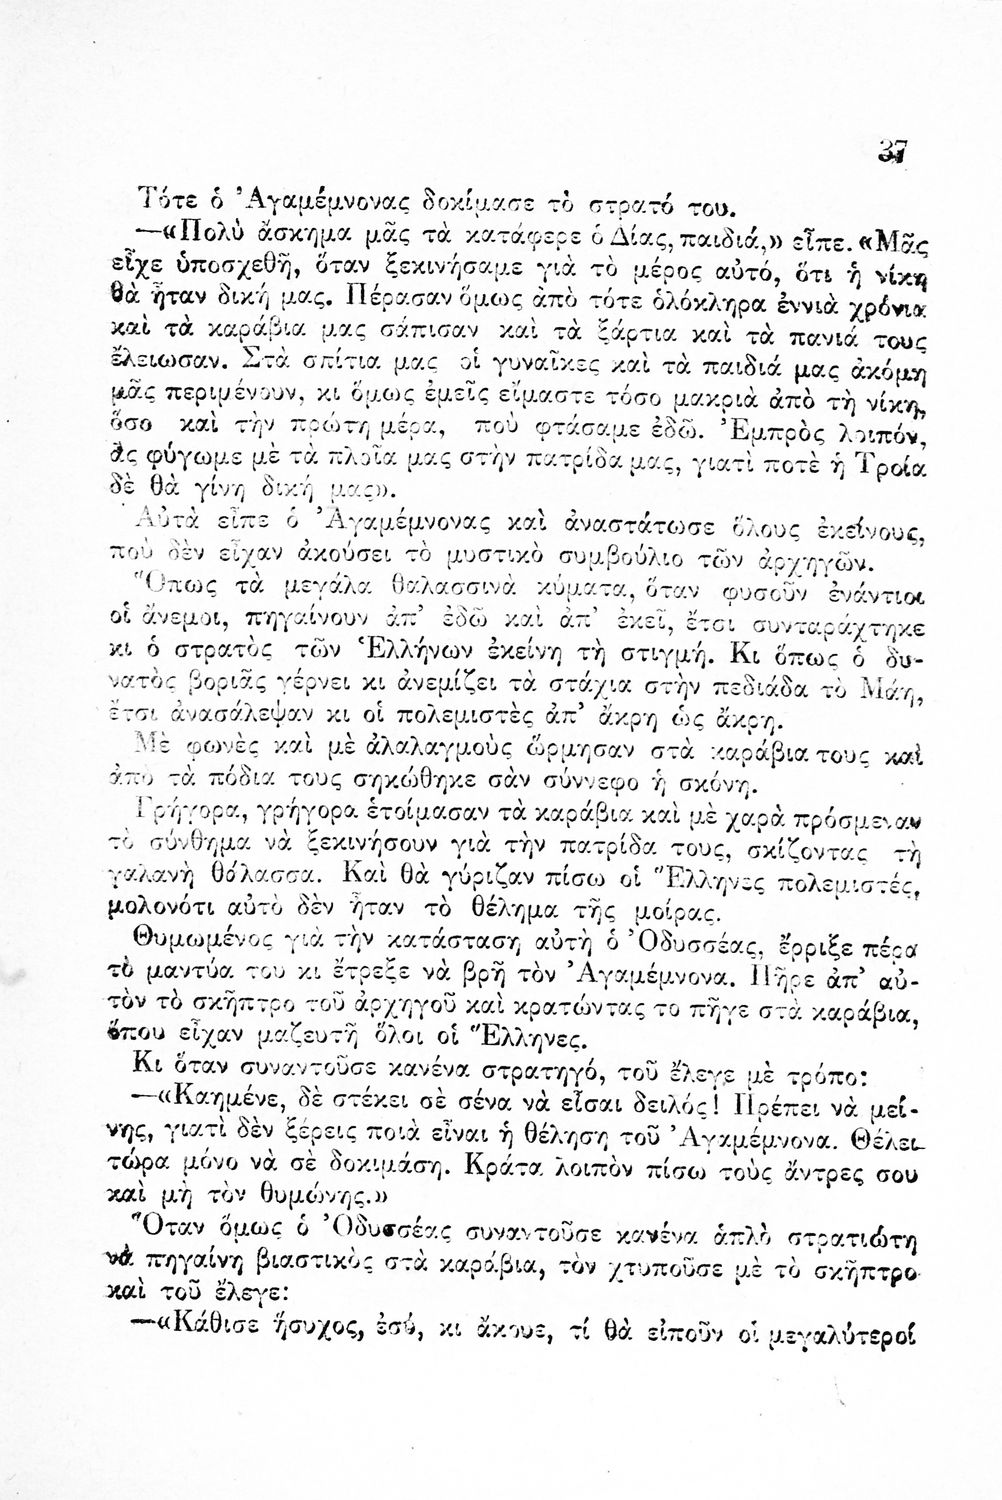 37
Τότε ὁ Ἀγαμέμνονας δοκίμασε τὸ στρατό του.
—«Πολὺ ἄσκημα μᾶς τὰ κατάφερε ὁ Δίας, παιδιά,» εἶπε. «Μᾶς
εἶχε ὑποσχεθῆ, ὅταν ξεκινήσαμε γιὰ τὸ μέρος αὐτό, ὅτι ἡ νίκη
θὰ ἦταν δική μας. Πέρασαν ὅμως ἀπὸ τότε ὁλόκληρα ἐννιὰ χρόνια
καὶ τὰ καράβια μας σάπισαν καὶ τὰ ξάρτια καὶ τὰ πανιά τους
ἔλειωσαν. Στὰ σπίτια μας οἱ γυναῖκες καὶ τὰ παιδιά μας ἀκόμη
μᾶς περιμένουν, κι ὅμως ἐμεῖς εἴμαστε τόσο μακριὰ ἀπὸ τὴ νίκη,
ὅσο καὶ τὴν πρώτη μέρα, ποὺ φτάσαμε ἐδῶ. Ἐμπρὸς λοιπόν,
ἂς φύγωμε μὲ τὰ πλοῖα μας στὴν πατρίδα μας, γιατὶ ποτὲ ἡ Τροία
δὲ θὰ γίνη δική μας».
Αὐτὰ εἶπε ὁ Ἀγαμέμνονας καὶ ἀναστάτωσε ὅλους ἐκείνους,
ποὺ δὲν εἶχαν ἀκούσει τὸ μυστικὸ συμβούλιο τῶν ἀρχηγῶν.
Ὅπως τὰ μεγάλα θαλασσινὰ κύματα, ὅταν φυσοῦν ἐνάντιοι
οἱ ἄνεμοι, πηγαίνουν ἀπ’ ἐδῶ καὶ ἀπ’ ἐκεῖ, ἔτσι συνταράχτηκε
κι ὁ στρατὸς τῶν Ἑλλήνων ἐκείνη τὴ στιγμή. Κι ὅπως ὁ δυ-
νατὸς βοριᾶς γέρνει κι ἀνεμίζει τὰ στάχια στὴν πεδιάδα τὸ Μάη,
ἔτσι ἀνασάλεψαν κι οἱ πολεμιστὲς ἀπ’ ἄκρη ὡς ἄκρη.
Μὲ φωνὲς καὶ μὲ ἀλαλαγμοὺς ὥρμησαν στὰ καράβια τους καὶ
ἀπὸ τὰ πόδια τους σηκώθηκε σὰν σύννεφο ἡ σκόνη.
Γρήγορα, γρήγορα ἑτοίμασαν τὰ καράβια καὶ μὲ χαρὰ πρόσμεναν
τὸ σύνθημα νὰ ξεκινήσουν γιὰ τὴν πατρίδα τους, σκίζοντας τὴ
γαλανὴ θάλασσα. Καὶ θὰ γύριζαν πίσω οἱ Ἕλληνες πολεμιστές,
μολονότι αὐτὸ δὲν ἦταν τὸ θέλημα τῆς μοίρας.
Θυμωμένος γιὰ τὴν κατάσταση αὐτὴ ὁ Ὀδυσσέας, ἔρριξε πέρα
τὸ μαντύα του κι ἔτρεξε νὰ βρῆ τὸν Ἀγαμέμνονα. Πῆρε ἀπ’ αὐ-
τὸν τὸ σκῆπτρο τοῦ ἀρχηγοῦ καὶ κρατώντας το πῆγε στὰ καράβια,
ὅπου εἶχαν μαζευτῆ ὅλοι οἱ Ἕλληνες.
Κι ὅταν συναντοῦσε κανένα στρατηγό, τοῦ ἔλεγε μὲ τρόπο:
—«Καημένε, δὲ στέκει σὲ σένα νὰ εἶσαι δειλός! Πρέπει νὰ μεί-
νης, γιατὶ δὲν ξέρεις ποιὰ εἶναι ἡ θέληση τοῦ Ἀγαμέμνονα. Θέλει
τώρα μόνο νὰ σὲ δοκιμάση. Κράτα λοιπὸν πίσω τοὺς ἄντρες σου
καὶ μὴ τὸν θυμώνης.»
Ὅταν ὅμως ὁ Ὀδυσσέας συναντοῦσε κανένα ἁπλὸ στρατιώτη
νὰ πηγαίνη βιαστικὸς στὰ καράβια, τὸν χτυποῦσε μὲ τὸ σκῆπτρο
καὶ τοῦ ἔλεγε:
—«Κάθισε ἥσυχος, ἐσύ, κι ἄκουε, τί θὰ εἰποῦν οἱ μεγαλύτεροί